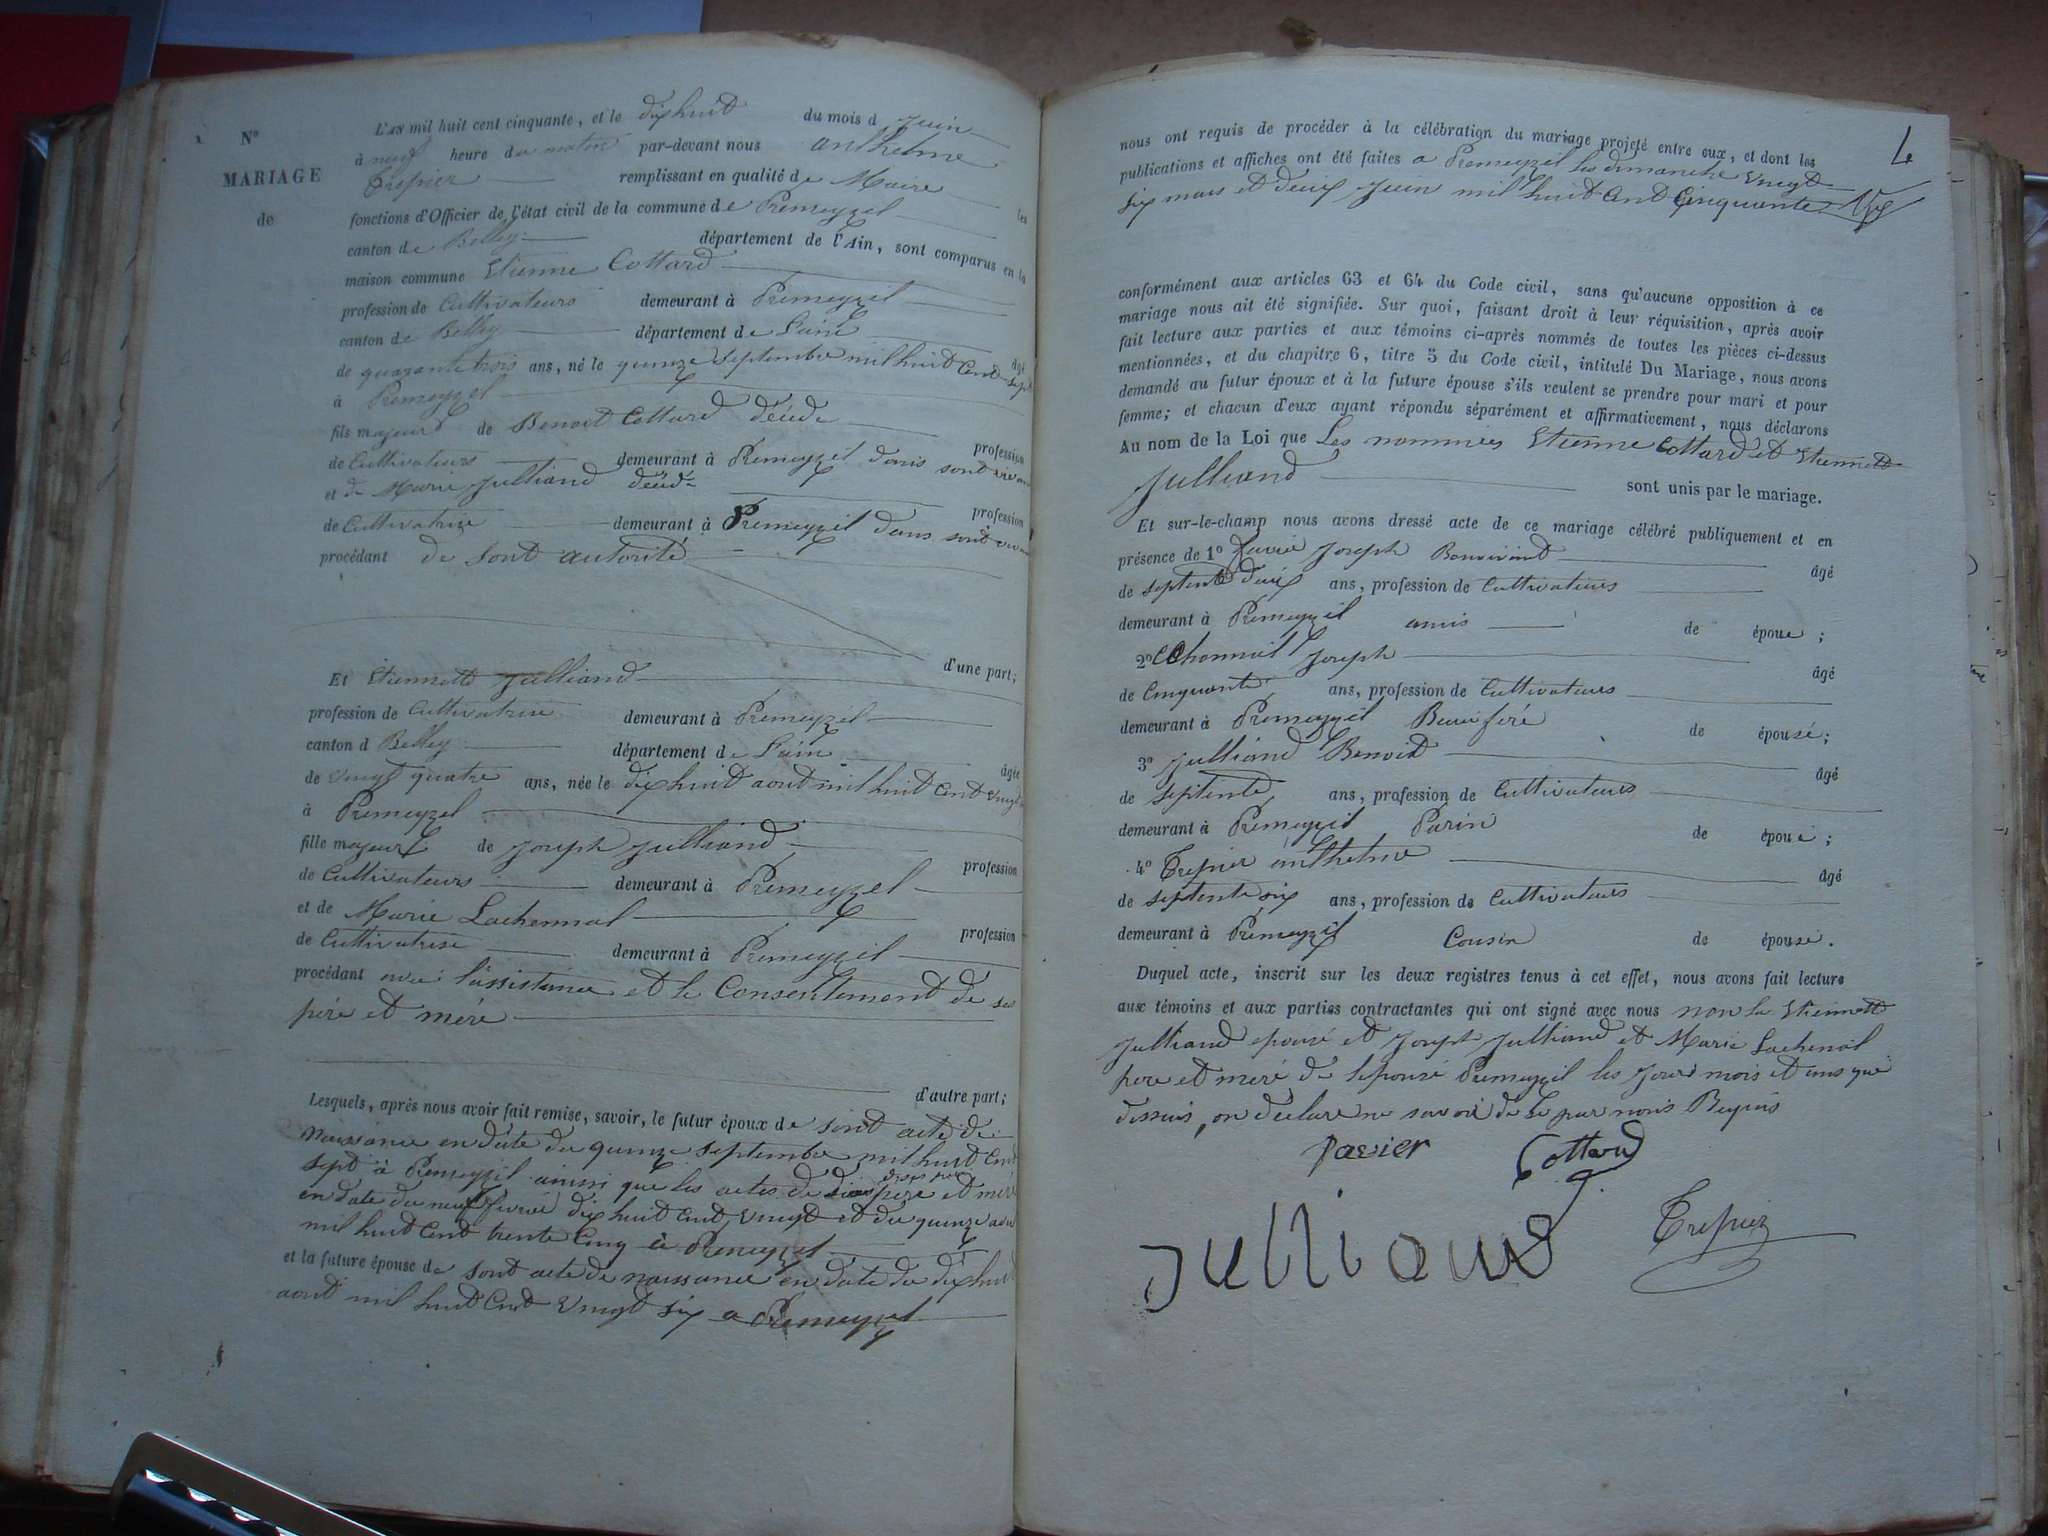 N°
MARIAGE
de
L'AN mil huit cent cinquante, et le dixhuit du mois d Juin
à neuf heure du matin par-devant nous anthelme
Trepier remplissant en qualité de Maire les
fonctions d'Officier de l'état civil de la commune de Premeyzel
canton de Belley département de l'Ain, sont comparus en la
maison commune Etienne Cottard
profession de Cultivateurs demeurant à Premeyzel
canton de Belley département de L'ain âgé
de quarante trois ans, né le quinze septembre mil huit Cent sept
à Premeyzel
fils majeur de Benoit Cottard décédé profession
de Cultivateurs demeurant à Premeyzel dans sont vivant
et de Marie Julliand décédé profession
de Cultivatrise demeurant à Premeyzel dans sont vivant
procédant de sont autorité
d'une part;
Et Etiennette Julliand
profession de Cultivatrise demeurant à Premeyzel
canton d Belley département de L'ain âgée
de vingt quatre ans, née le dixhuit aout mil huit Cent vingt
à Premeyzel
fille majeur de Joseph Julliand profession
de Cultivateurs demeurant à Premeyzel
et de Marie Lachennal profession
de Cultivatrise demeurant à Premeyzel
procédant avec l'assistance et le Consentement de ses
père et méré
d'autre part;
Lesquels, après nous avoir fait remise, savoir, le futur époux de sont acte de
naissance en date du quinze septembre mil huit Cent
sept à Premeyzel ainssi que les actes de pere et méré
en date du neuf fevrié dixhuit Cent vingt et du quinze
mil huit Cent trente Cinq à Premeyzel
et la future épouse de sont acte de naissance en date du dixhuit
aout mil huit Cent vingt six a Premeyzel
4
nous ont requis de procéder à la célébration du mariage projeté entre eux, et dont les
publications et affiches ont été faites a Premeyzel les dimanche vingt
six mais et deux Juin mil huit Cent Cinquante
conformément aux articles 63 et 64 du Code civil, sans qu'aucune opposition à ce
mariage nous ait été signifiée. Sur quoi, faisant droit à leur réquisition, après avoir
fait lecture aux parties et aux témoins ci-après nommés de toutes les pièces ci-dessus
mentionnées, et du chapitre 6, titre 5 du Code civil, intitulé Du Mariage, nous avons
demandé au futur époux et à la future épouse s'ils veulent se prendre pour mari et pour
femme; et chacun d'eux ayant répondu séparément et affirmativement, nous déclarons
Au nom de la Loi que Les nommées Etienne Cottard et Etiennette
Julliand sont unis par le mariage.
Et sur-le-champ nous avons dressé acte de ce mariage célébré publiquement et en
présence de 1° Joseph âgé
de septente deux ans, profession de Cultivateurs
demeurant à Premeyzel amis de époue;
2° Joseph âgé
de Cinquante ans, profession de Cultivateurs
demeurant à Premeyzel Beauferé de épousé;
3° Julliand Benoit âgé
de septente ans, profession de Cultivateurs
demeurant à Premeyzel Parin de époué;
4° Trepier anthelme âgé
de septente six ans, profession de Cultivateurs
demeurant à Premeyzel Cousin de épousé.
Duquel acte, inscrit sur les deux registres tenus à cet effet, nous avons fait lecture
aux témoins et aux parties contractantes qui ont signé avec nous non la Etiennette
Julliand epousé et Joseph Julliand et Marie Lachenal
pere et méré de l'epousé Premeyzel les jour mois et ans que
dessus, on déclare ne savoir de Ce par nous Requis
Cottard
Julliand Trepier